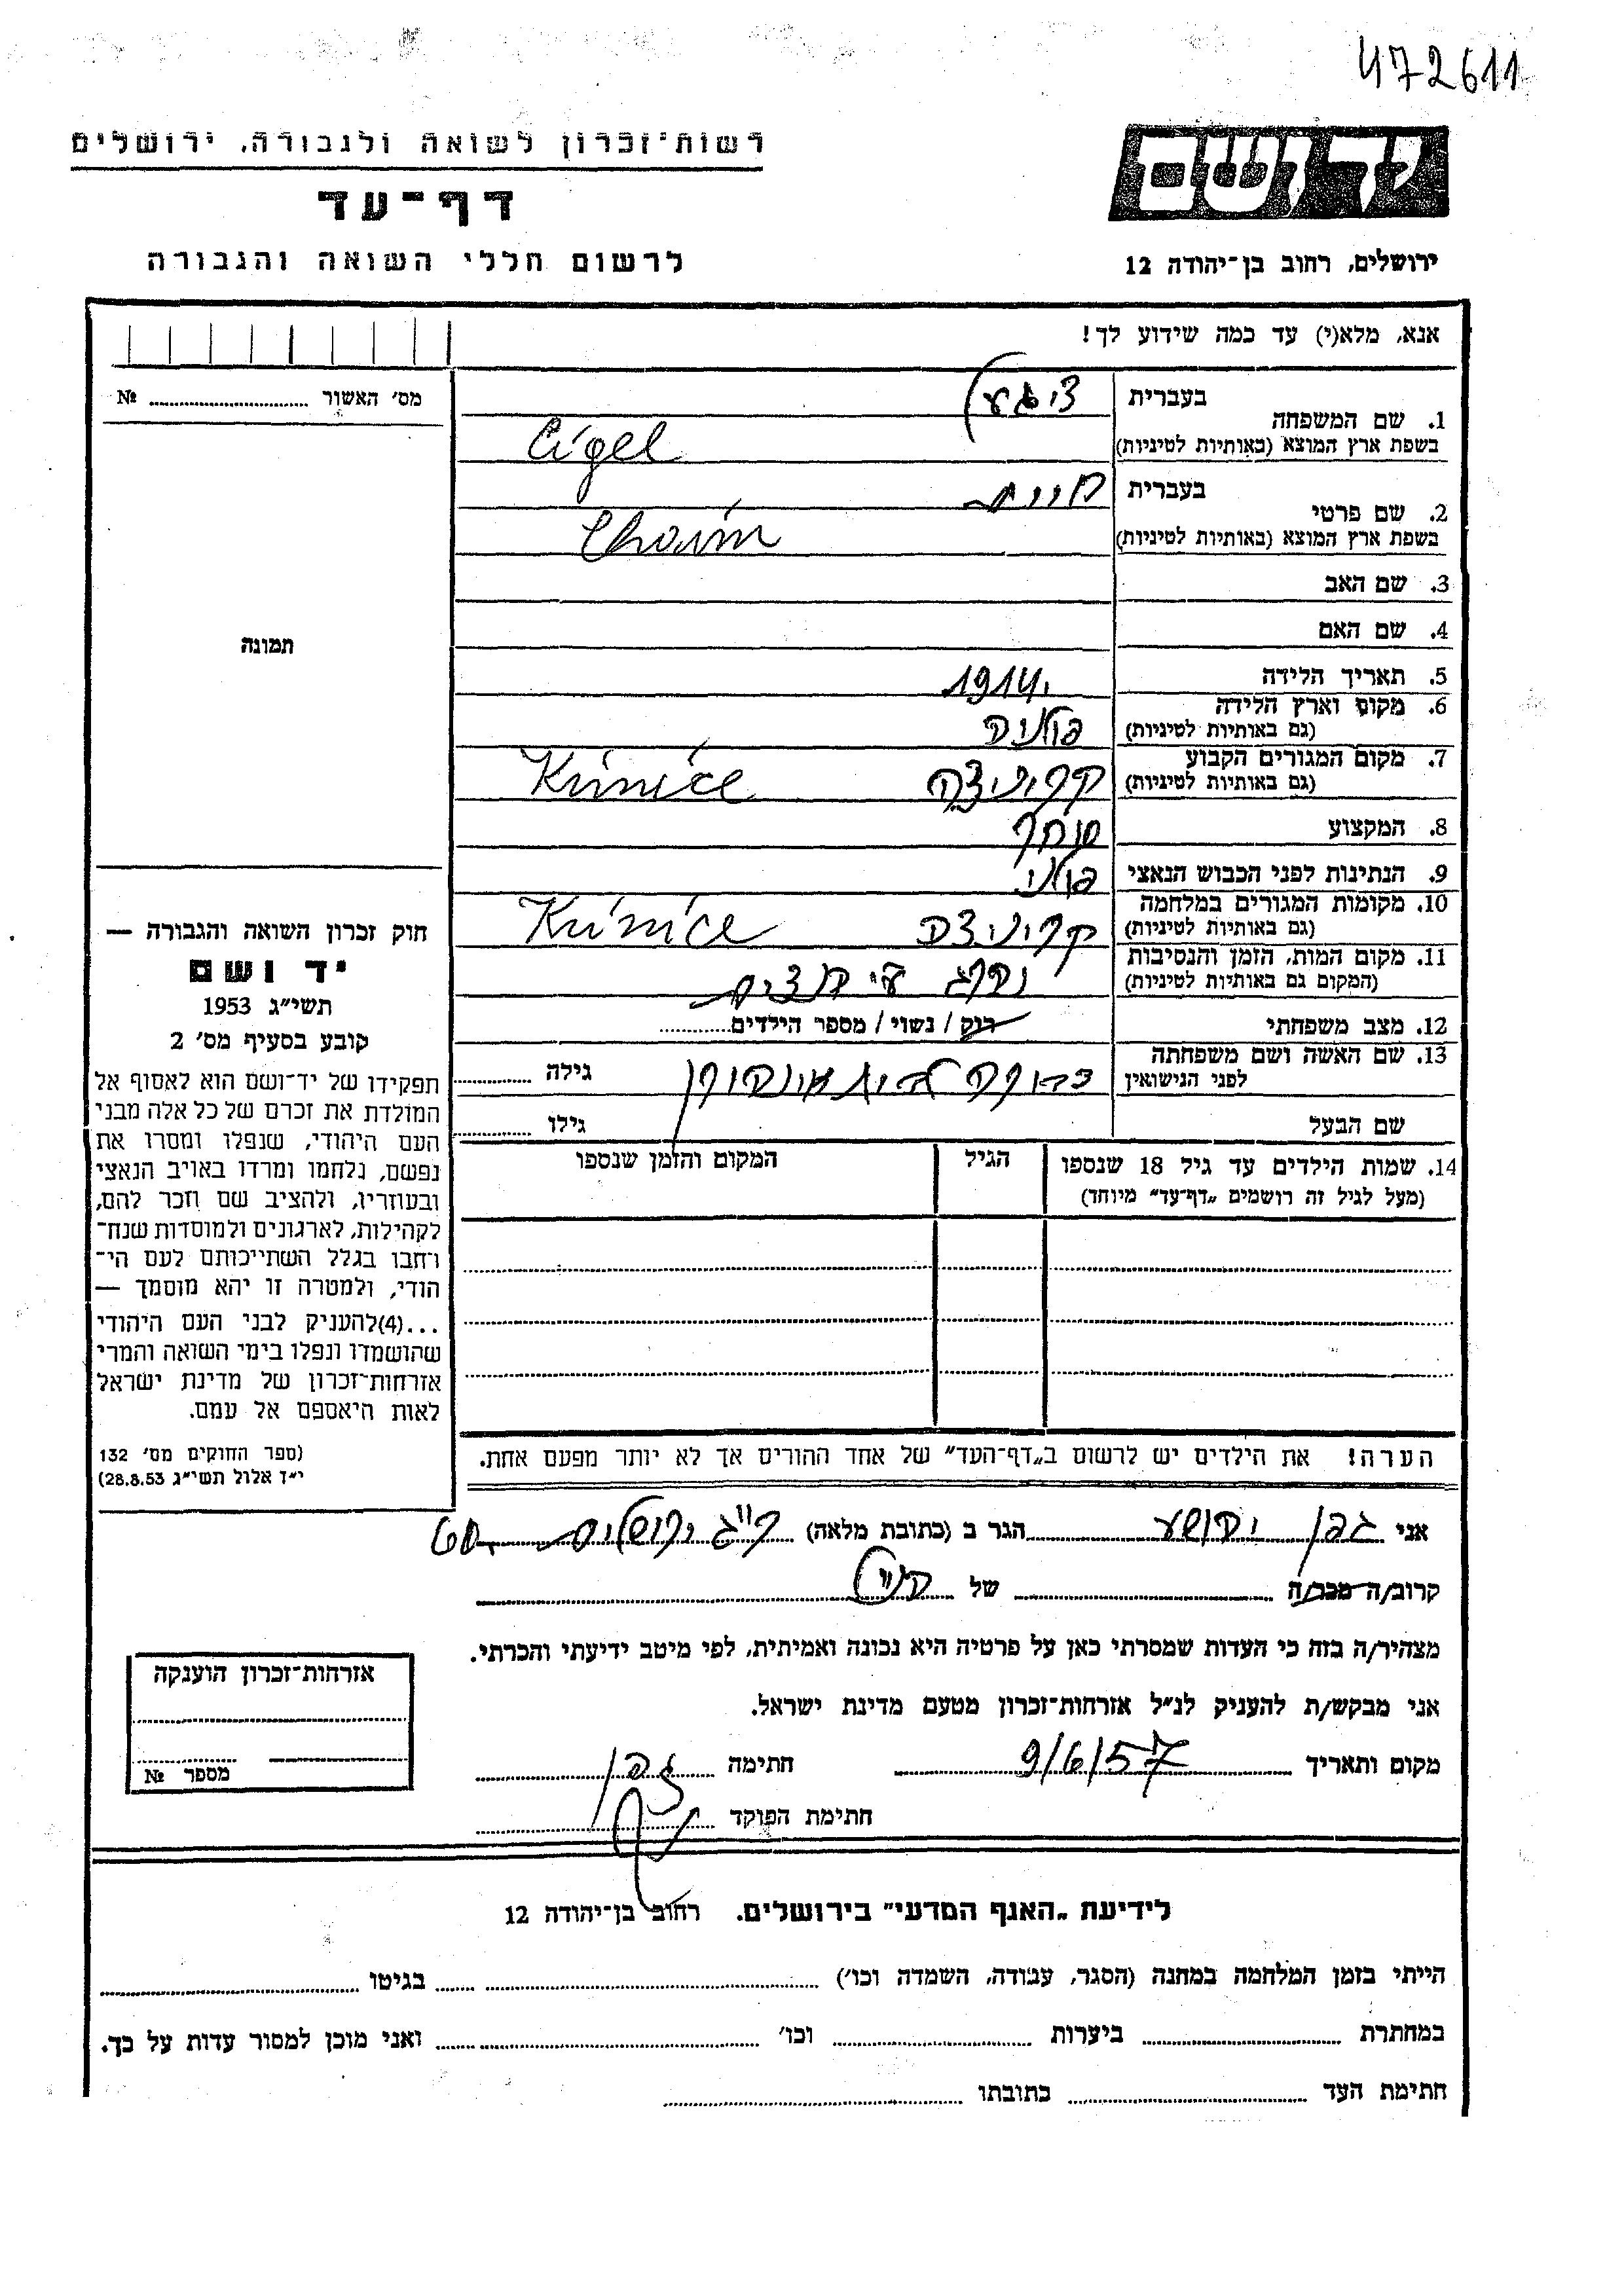 472611
רשות־זכרון לשואה ולגבורה, ירושלים
יד ושם
דף־עד
לרשום חללי השואה והגבורה
ירושלים, רחוב בן־יהודה 12
אנא, מלא(י) עד כמה שידוע לך!
מס׳ האשור № 
1. שם המשפחה
בעברית ציגעל
בשפת ארץ המוצא (באותיות לטיניות) Cigel
2. שם פרטי
בעברית חיים
בשפת ארץ המוצא (באותיות לטיניות) Chaim
3. שם האב
4. שם האם
5. תאריך הלידה 1914
6. מקום וארץ הלידה
(גם באותיות לטיניות) פולניה
7. מקום המגורים הקבוע
(גם באותיות לטיניות) קריניצה Krinice
8. המקצוע סוחר
9. הנתינות לפני הכבוש הנאצי פולני
10. מקומות המגורים במלחמה
(גם באותיות לטיניות) קריניצה Krinice
11. מקום המות, הזמן והנסיבות
(המקום גם באותיות לטיניות) נהרג ע״י הנצים
12. מצב משפחתי רוק / נשוי / מספר הילדים
13. שם האשה ושם משפחתה
לפני הנישואין גילה
שם הבעל גילו
14. שמות הילדים עד גיל 18 שנספו
(מעל לגיל זה רושמים „דף־עד״ מיוחד)
הגיל
המקום והזמן שנספו
הערה! את הילדים יש לרשום ב„דף־העד״ של אחד ההורים אך לא יותר מפעם אחת.
תמונה
חוק זכרון השואה והגבורה —
יד ושם
תשי״ג 1953
קובע בסעיף מס׳ 2
תפקידו של יד־ושם הוא לאסוף אל
המולדת את זכרם של כל אלה מבני
העם היהודי, שנפלו ומסרו את
נפשם, נלחמו ומרדו באויב הנאצי
ובעוזריו, ולהציב שם וזכר להם,
לקהילות, לארגונים ולמוסדות שנח־
רחבו בגלל השתייכותם לעם הי־
הודי, ולמטרה זו יהא מוסמך —
...(4)להעניק לבני העם היהודי
שהושמדו ונפלו בימי השואה והמרי
אזרחות־זכרון של מדינת ישראל
לאות היאספם אל עמם.
(ספר החוקים מס׳ 132
י״ד אלול תשי״ג 28.8.53)
אני גפן יהושע הגר ב (כתובת מלאה) ירושלים
קרוב/ה מכר/ה של הנ״ל
מצהיר/ה בזה כי העדות שמסרתי כאן על פרטיה היא נכונה ואמיתית, לפי מיטב ידיעתי והכרתי.
אני מבקש/ת להעניק לנ״ל אזרחות־זכרון מטעם מדינת ישראל.
מקום ותאריך 9/6/57 חתימה גפן
חתימת הפוקד
אזרחות־זכרון הוענקה
מספר №
לידיעת „האגף המדעי״ בירושלים. רחוב בן־יהודה 12
הייתי בזמן המלחמה במחנה (הסגר, עבודה, השמדה וכו׳) בגיטו
במחתרת ביערות וכו׳ ואני מוכן למסור עדות על כך.
חתימת העד כתובתו